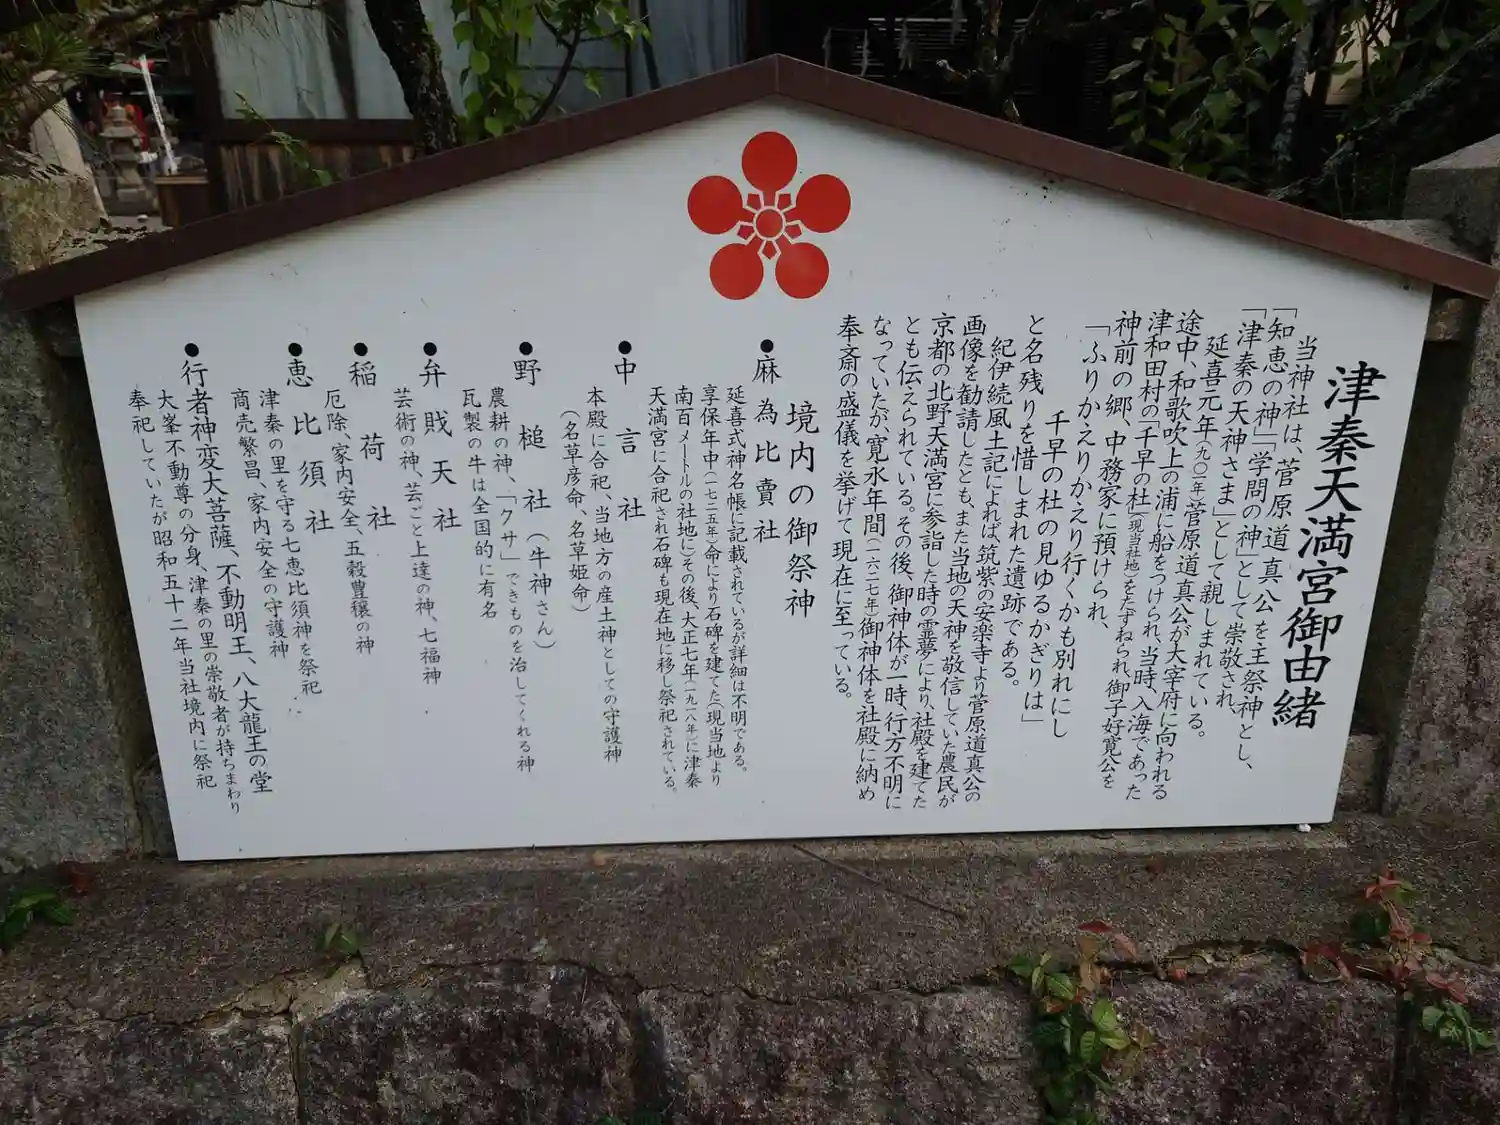 津秦天満宮御由緒
当神社は、菅原道真公を主祭神とし、
「知恵の神」「学問の神」として崇敬され、
「津秦の天神さま」として親しまれている。
延喜元年(九〇一年)菅原道真公が大宰府に向われる
途中、和歌吹上の浦に船をつけられ、当時、入海であった
津和田村の「千早の杜」(現当社地)をたずねられ、御子好寛公を
神前の郷、中務家に預けられ、
「ふりかえりかえり行くかも別れにし
千早の杜の見ゆるかぎりは」
と名残りを惜しまれた遺跡である。
紀伊続風土記によれば、筑紫の安楽寺より菅原道真公の
画像を勧請したとも、また当地の天神を敬信していた農民が
京都の北野天満宮に参詣した時の霊夢により、社殿を建てた
とも伝えられている。その後、御神体が一時、行方不明に
なっていたが、寛永年間(一六二七年)御神体を社殿に納め
奉斎の盛儀を挙げて現在に至っている。
境内の御祭神
●麻為比賣社
延喜式神名帳に記載されているが詳細は不明である。
享保年中(一七二五年)命により石碑を建てた(現当地より
南百メートルの社地に)その後、大正七年(一九一八年)に津秦
天満宮に合祀され石碑も現在地に移し祭祀されている。
●中言社
本殿に合祀、当地方の産土神としての守護神
(名草彦命、名草姫命)
●野槌社(牛神さん)
農耕の神、「クサ」できものを治してくれる神
瓦製の牛は全国的に有名
●弁戝天社
芸術の神、芸ごと上達の神、七福神
●稲荷社
厄除、家内安全、五穀豊穣の神
●恵比須社
津秦の里を守る七恵比須神を祭祀
商売繁昌、家内安全の守護神
●行者神変大菩薩、不動明王、八大龍王の堂
大峯不動尊の分身、津秦の里の崇敬者が持ちまわり
奉祀していたが昭和五十二年当社境内に祭祀